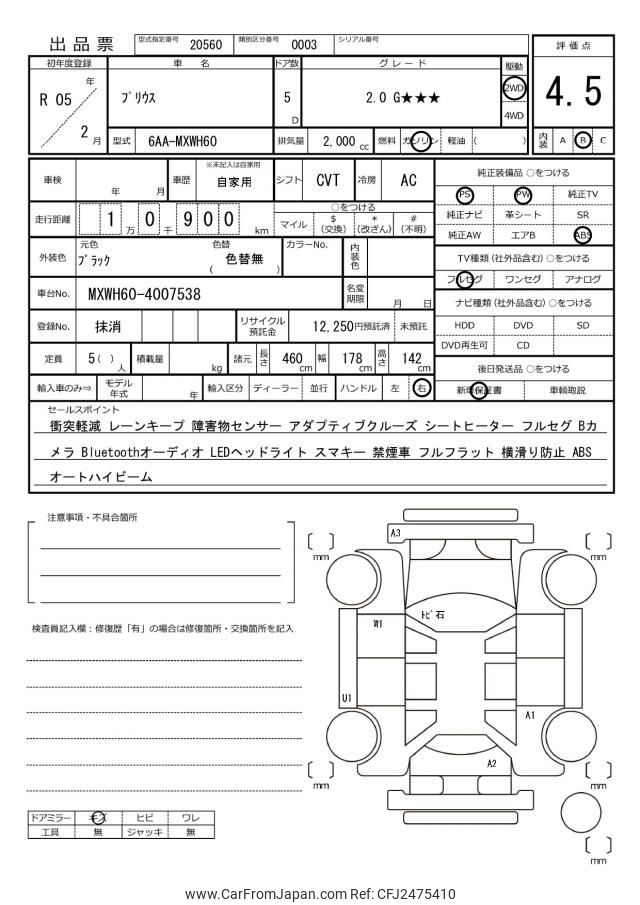 出品票 型式指定番号 20560 類別区分番号 0003 シリアル番号
評価点
4.5
初年度登録 車名 ドア数 グレード 駆動
R 05 年 2 月 プリウス 5 D 2.0 G★★★ 2WD 4WD
型式 6AA-MXWH60 排気量 2,000 cc 燃料 ガソリン 軽油 ( ) 内装 A B C
車検 年 月 車歴 ※未記入は自家用 自家用 シフト CVT 冷房 AC
純正装備品 ○をつける
PS PW 純正TV
純正ナビ 革シート SR
純正AW エアB ABS
走行距離 1 万 0 千 9 0 0 km
○をつける
マイル $ (交換) * (改ざん) # (不明)
外装色 元色 ブラック 色替 ( 色替無 ) カラーNo. 内装色
TV種類(社外品含む) ○をつける
フルセグ ワンセグ アナログ
車台No. MXWH60-4007538 名変期限 月 日
ナビ種類(社外品含む) ○をつける
HDD DVD SD
DVD再生可 CD
登録No. 抹消 リサイクル預託金 12,250円預託済 未預託
定員 5 ( ) 人 積載量 kg 諸元 長さ 460 cm 幅 178 cm 高さ 142 cm
後日発送品 ○をつける
新車保証書 車輌取説
輸入車のみ⇒ モデル年式 年 輸入区分 ディーラー 並行 ハンドル 左 右
セールスポイント
衝突軽減 レーンキープ 障害物センサー アダプティブクルーズ シートヒーター フルセグ Bカ
メラ Bluetoothオーディオ LEDヘッドライト スマキー 禁煙車 フルフラット 横滑り防止 ABS
オートハイビーム
注意事項・不具合箇所
検査員記入欄：修復歴「有」の場合は修復箇所・交換箇所を記入
A3
[ ] mm [ ] mm
トビ石
W1
U1
A1
A2
[ ] mm [ ] mm
[ ] mm
ドアミラー キズ ヒビ ワレ
工具 無 ジャッキ 無
www.CarFromJapan.com Ref: CFJ2475410